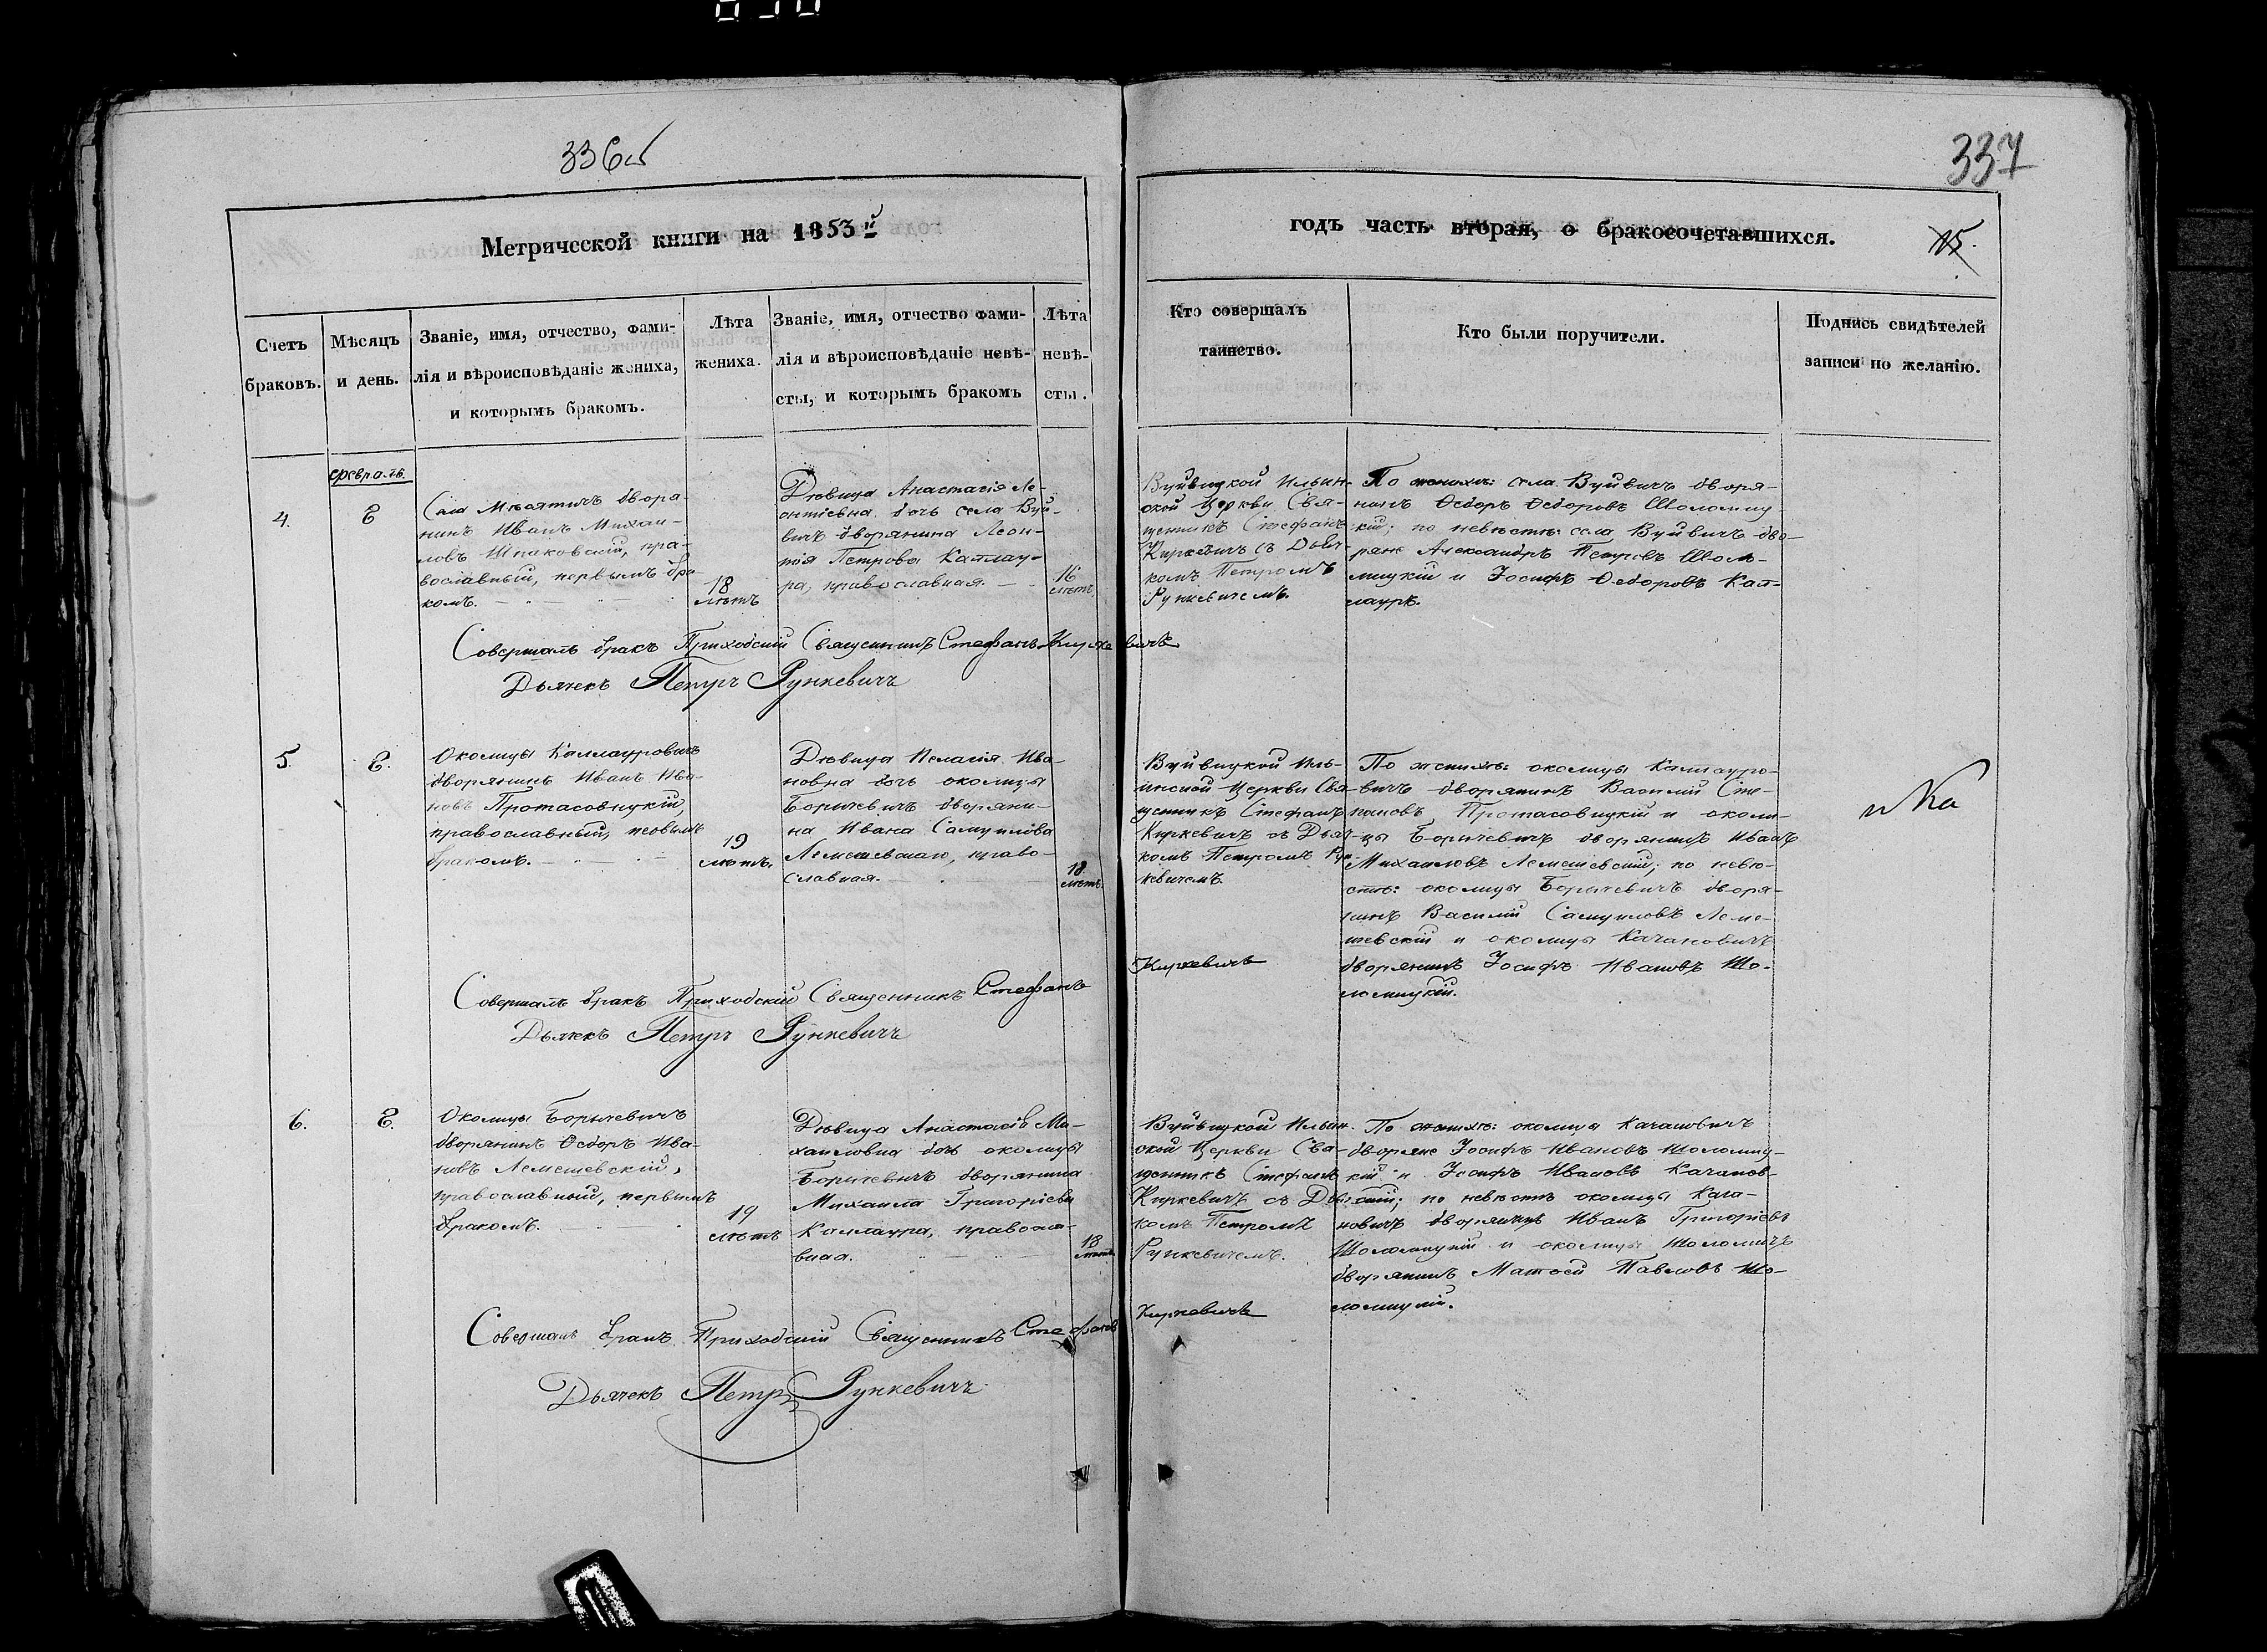 336об
337
Метрической книги на 1853й
годъ часть вторая, о бракосочетавшихся.
15.
Счетъ
браковъ.
Мѣсяцъ
и день.
Званіе, имя, отчество, фами-
лія и вѣроисповѣданіе жениха,
и которымъ бракомъ.
Лѣта
жениха.
Званіе, имя, отчество фами-
лія и вѣроисповѣданіе невѣ-
сты, и которымъ бракомъ
Лѣта
невѣ-
сты.
Кто совершалъ
таинство.
Кто были поручители.
Подпись свидѣтелей
записи по желанію.
Февраль
4.
8
Села дворя-
нинъ Иванъ Михаи-
ловъ Шпаковскій, пра-
вославный, первымъ бра-
комъ.
18
лѣтъ
Дѣвица Анастасія Ле-
онтіевна дочь села Вуй-
вичъ дворянина Леон-
тія Петрова Каллау-
ра, православная.
16
лѣтъ
Вуйвицкой Ильин-
ской Церкви Свя-
щенникъ Стефанъ
Киркевичъ съ Дьяч-
комъ Петромъ
Рункевичемъ.
По женихѣ: села Вуйвичъ дворя-
нинъ Ѳедоръ Ѳедоровъ Шоломиц-
кій; по невѣстѣ: села Вуйвичъ дво-
ряне Александръ Петровъ Шоло-
мицкій и Іосифъ Ѳедоровъ Кал-
лауръ.
Совершалъ бракъ Приходскій Священникъ Стефанъ Киркевичъ
Дьячекъ Петръ Рункевичъ
5.
8.
Околицы Каллауровичъ
дворянинъ Иванъ Ива-
новъ Протасовицкій,
православный, первымъ
бракомъ.
19
лѣтъ.
Дѣвица Пелагія Ива-
новна дочь околицы
Боричевичъ дворяни-
на Ивана Самуилова
Лемешевскаго, право-
славная.
18
лѣтъ.
Вуйвицкой Иль-
инской Церкви Свя-
щенникъ Стефанъ
Киркевичъ съ Дьяч-
комъ Петромъ Рун-
кевичемъ.
По женихѣ: околицы Каллауро-
вичъ дворянинъ Василій Сте-
пановъ Протасовицкій и околи-
цы Боричевичъ дворянинъ Иванъ
Михаиловъ Лемешевскій; по невѣ-
стѣ: околицы Боричевичъ дворя-
нинъ Василій Самуиловъ Леме-
шевскій и околицы Качановичъ
дворянинъ Іосифъ Ивановъ Шо-
ломицкій.
Совершалъ бракъ Приходскій Священникъ Стефанъ
Киркевичъ
Дьячекъ Петръ Рункевичъ
6.
8.
Околицы Боричевичъ
дворянинъ Ѳедоръ Ива-
новъ Лемешевскій,
православный, первымъ
бракомъ.
19
лѣтъ
Дѣвица Анастасія Ми-
хаиловна дочь околицы
Боричевичъ дворянина
Михаила Григоріева
Каллаура, правосла-
вная.
18
лѣтъ
Вуйвицкой Ильин-
ской Церкви Свя-
щенникъ Стефанъ
Киркевичъ съ Дьяч-
комъ Петромъ
Рункевичемъ.
По женихѣ: околицы Качановичъ
дворяне Іосифъ Ивановъ Шоломиц-
кій и Іосифъ Ивановъ Качанов-
скій; по невѣстѣ околицы Кача-
новичъ дворянинъ Иванъ Григоріевъ
Шоломицкій и околицы Шоломичъ
дворянинъ Матвей Павловъ Шо-
ломицкій.
Совершалъ бракъ Приходскій Священникъ Стефанъ
Киркевичъ
Дьячекъ Петръ Рункевичъ